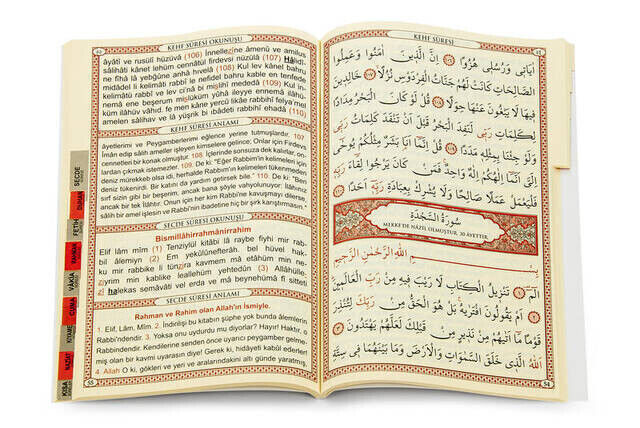 KEHF SÛRESİ OKUNUŞU
âyâtî ve rusülî hüzüvâ (106) İnnellezîne âmenû ve amilus
sâlihâti kânet lehüm cennâtül firdevsi nüzülâ (107) Hâlidî-
ne fîhâ lâ yebğûne anhâ hıvelâ (108) Kul lev kânel bahru
midâdel li kelimâti rabbî le nefidel bahru kable en tenfede
kelimâtü rabbî ve lev ci'nâ bi mislihî mededâ (109) Kul in-
nemâ ene beşerum mislüküm yûhâ ileyye ennemâ ilâhü-
küm ilâhüv vâhid, fe men kâne yercû likâe rabbihî felya'mel
amelen sâlihav ve lâ yüşrik bi ıbâdeti rabbihî ehadâ (110)
KEHF SÛRESİ ANLAMI
âyetlerimi ve Peygamberlerimi eğlence yerine tutmuşlardır. 107
İman edip sâlih ameller işleyen kimselere gelince; Onlar için Firdevs
cennetleri bir konak olmuştur. 108 İçlerinde sonsuza dek kalırlar, on-
lardan çıkmak istemezler. 109. De ki: "Eğer Rabbim'in kelimeleri için
deniz mürekkeb olsa idi, herhalde Rabbim'in kelimeleri tükenmeden
deniz tükenirdi. Bir katını da yardım getirsek bile." 110. De ki: "Ben
sırf sizin gibi bir beşerim, ancak bana şöyle vahyolunuyor: İlâhınız
ancak bir tek İlâhtır. Onun için her kim Rabbi'ne kavuşmayı dilerse,
sâlih bir amel işlesin ve Rabbi'nin ibadetine hiç bir şirk karıştırmasın."
SECDE SÛRESİ OKUNUŞU
Bismillâhirrahmânirrahîm
Elif lâm mîm (1) Tenzîylül kitâbi lâ raybe fîyhi mir rab-
bil âlemiyn (2) Em yekûlûnefterâh, bel hüvel hak-
ku mir rabbike li tünzira kavmem mâ etâhüm min ne-
ziyrim min kablike leallehüm yehtedûn (3) Allâhülle-
zî halekas semâvâti vel erda ve mâ beynehümâ fî sitteti
SECDE SÛRESİ ANLAMI
Rahman ve Rahim olan Allah'ın İsmiyle.
1. Elif, Lâm, Mîm. 2. İndirilişi bu kitabın şüphe yok bunda âlemlerin
Rabbi'ndendir. 3. Yoksa onu uydurdu mu diyorlar? Hayır! Haktır, o
Rabbindendir. Kendilerine senden önce uyarıcı peygamber gelme-
miş olan bir kavmi uyarasın diye! Gerek ki, hidâyeti kabûl ederler!
4. Allah O ki, gökleri ve yeri ve aralarındakini altı günde yaratmış,
55
SECDE
DUHAN
FETH
RAHMAN
VAKIA
CUMA
KIYAME
NAZİAT
KISA
KEHF SÛRESİ
اٰيَاتِى وَرُسُلِى هُزُوًا ﴿١٠٦﴾ اِنَّ الَّذِينَ اٰمَنُوا وَعَمِلُوا
الصَّالِحَاتِ كَانَتْ لَهُمْ جَنَّاتُ الْفِرْدَوْسِ نُزُلًا ﴿١٠٧﴾ خَالِدِينَ
فِيهَا لَا يَبْغُونَ عَنْهَا حِوَلًا ﴿١٠٨﴾ قُلْ لَوْ كَانَ الْبَحْرُ مِدَادًا
لِكَلِمَاتِ رَبِّى لَنَفِدَ الْبَحْرُ قَبْلَ اَنْ تَنْفَدَ كَلِمَاتُ رَبِّى
وَلَوْ جِئْنَا بِمِثْلِهِ مَدَدًا ﴿١٠٩﴾ قُلْ اِنَّمَٓا اَنَا۬ بَشَرٌ مِثْلُكُمْ يُوحٰٓى
اِلَىَّ اَنَّمَٓا اِلٰهُكُمْ اِلٰهٌ وَاحِدٌ فَمَنْ كَانَ يَرْجُوا لِقَٓاءَ رَبِّهِ
فَلْيَعْمَلْ عَمَلًا صَالِحًا وَلَا يُشْرِكْ بِعِبَادَةِ رَبِّهِٓ اَحَدًا ﴿١١٠﴾
سُورَةُ السَّجْدَةِ
MEKKE'DE NÂZİL OLMUŞTUR. 30 ÂYETTİR.
بِسْمِ اللّٰهِ الرَّحْمٰنِ الرَّحِيمِ
الٓمٓ ﴿١﴾ تَنْزِيلُ الْكِتَابِ لَا رَيْبَ فِيهِ مِنْ رَبِّ الْعَالَمِينَ
﴿٢﴾ اَمْ يَقُولُونَ افْتَرٰيهُ بَلْ هُوَ الْحَقُّ مِنْ رَبِّكَ لِتُنْذِرَ
قَوْمًا مَٓا اَتٰيهُمْ مِنْ نَذِيرٍ مِنْ قَبْلِكَ لَعَلَّهُمْ يَهْتَدُونَ ﴿٣﴾
اَللّٰهُ الَّذِى خَلَقَ السَّمٰوَاتِ وَالْاَرْضَ وَمَا بَيْنَهُمَا فِى سِتَّةِ
54